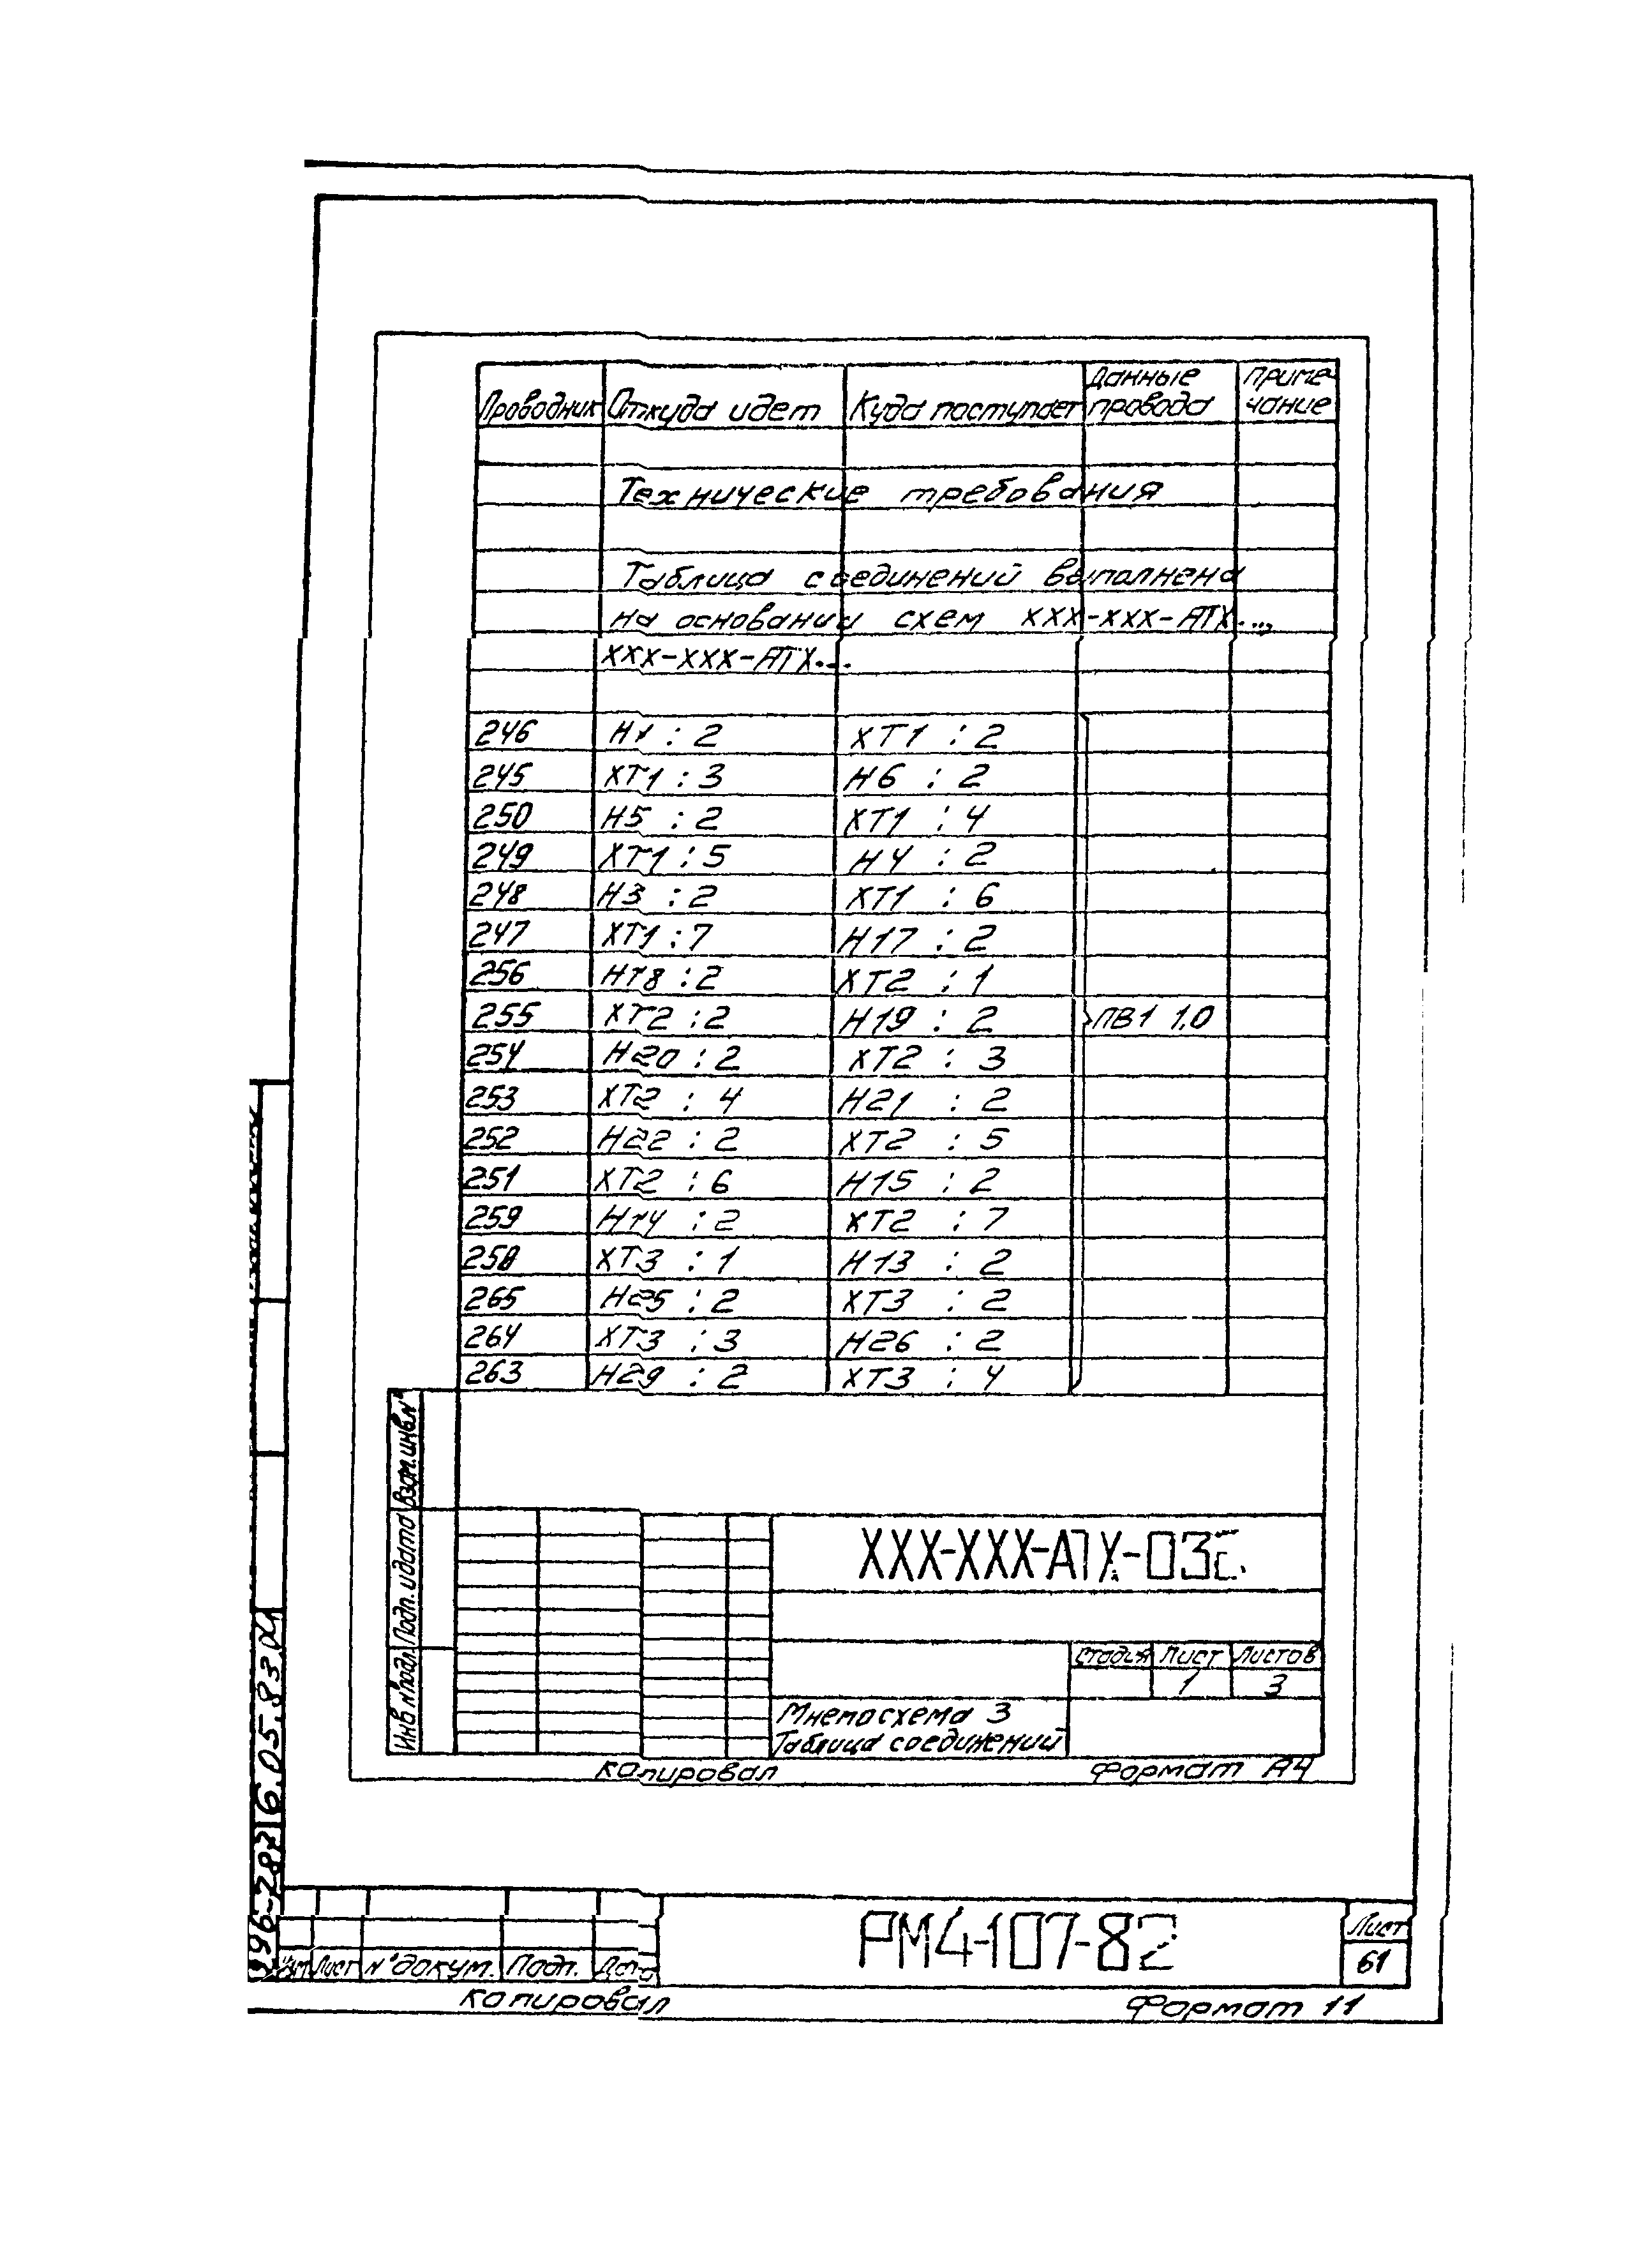 Проводник Откуда идет Куда поступает Данные провода Примечание
Технические требования
Таблица соединений выполнена
на основании схем ХХХ-ХХХ-АТХ...,
ХХХ-ХХХ-АТХ...
246 Н1 : 2 ХТ1 : 2
245 ХТ1 : 3 Н6 : 2
250 Н5 : 2 ХТ1 : 4
249 ХТ1 : 5 Н4 : 2
248 Н3 : 2 ХТ1 : 6
247 ХТ1 : 7 Н17 : 2
256 Н18 : 2 ХТ2 : 1
255 ХТ2 : 2 Н19 : 2 ПВ1 1.0
254 Н20 : 2 ХТ2 : 3
253 ХТ2 : 4 Н21 : 2
252 Н22 : 2 ХТ2 : 5
251 ХТ2 : 6 Н15 : 2
259 Н14 : 2 ХТ2 : 7
258 ХТ3 : 1 Н13 : 2
265 Н25 : 2 ХТ3 : 2
264 ХТ3 : 3 Н26 : 2
263 Н29 : 2 ХТ3 : 4
Взам.инв.№
Подп. и дата
Инв № подл.
Стадия Лист Листов
1 3
Мнемосхема 3
Таблица соединений
Копировал Формат А4
РМ4-107-82
Лист
61
Лист № докум. Подп. Дата
Копировал Формат 11